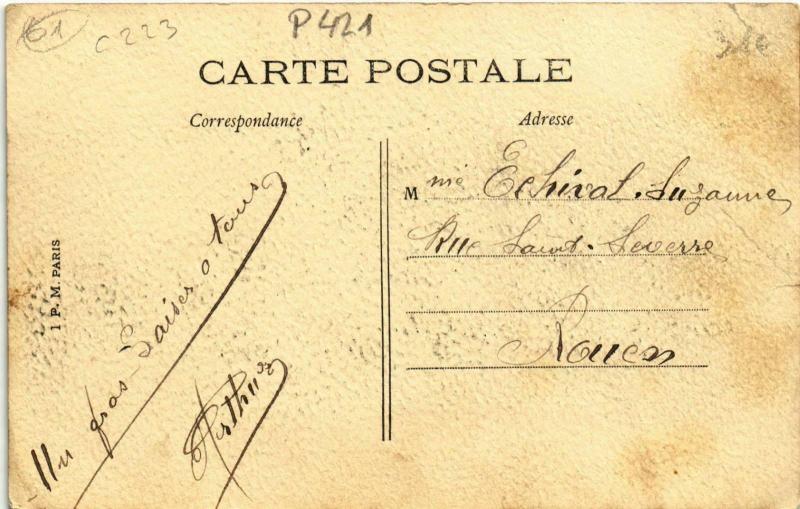 61
C 223
P421
CARTE POSTALE
Correspondance
Adresse
Mme Echival. Suzanne
Rue Saint-Severre
Rouen
Un gros Baiser a tous
Arthur
1 P. M. PARIS